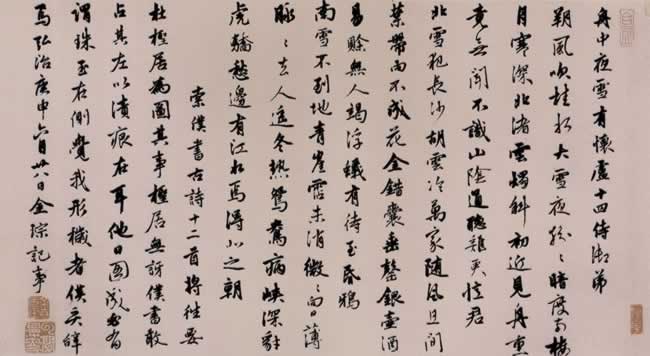 舟中夜雪有懷盧十四侍御弟
朔風吹桂水大雪夜紛〻暗度南樓
月寒深北渚雲燭斜初近見舟重
竟无聞不識山陰道聽雞更憶君
北雪犯長沙胡雲冷萬家隨風且間
葉帶雨不成花金錯囊垂罄銀壺酒
易賖無人竭浮蟻有待至昏鴉
南雪不到地青崖霑未消微〻向日薄
脉〻去人遙冬熱鴛鴦病峽深豺
虎驕愁邊有江水焉得北之朝
索僕書古詩十二首將往要
杜檉居為圖其事檉居無訝僕書敢
占其左以漬痕在耳他日圖成必有
謂珠玉在側覺我形穢者僕奚辭
焉弘治庚申六月廿八日金琮記事